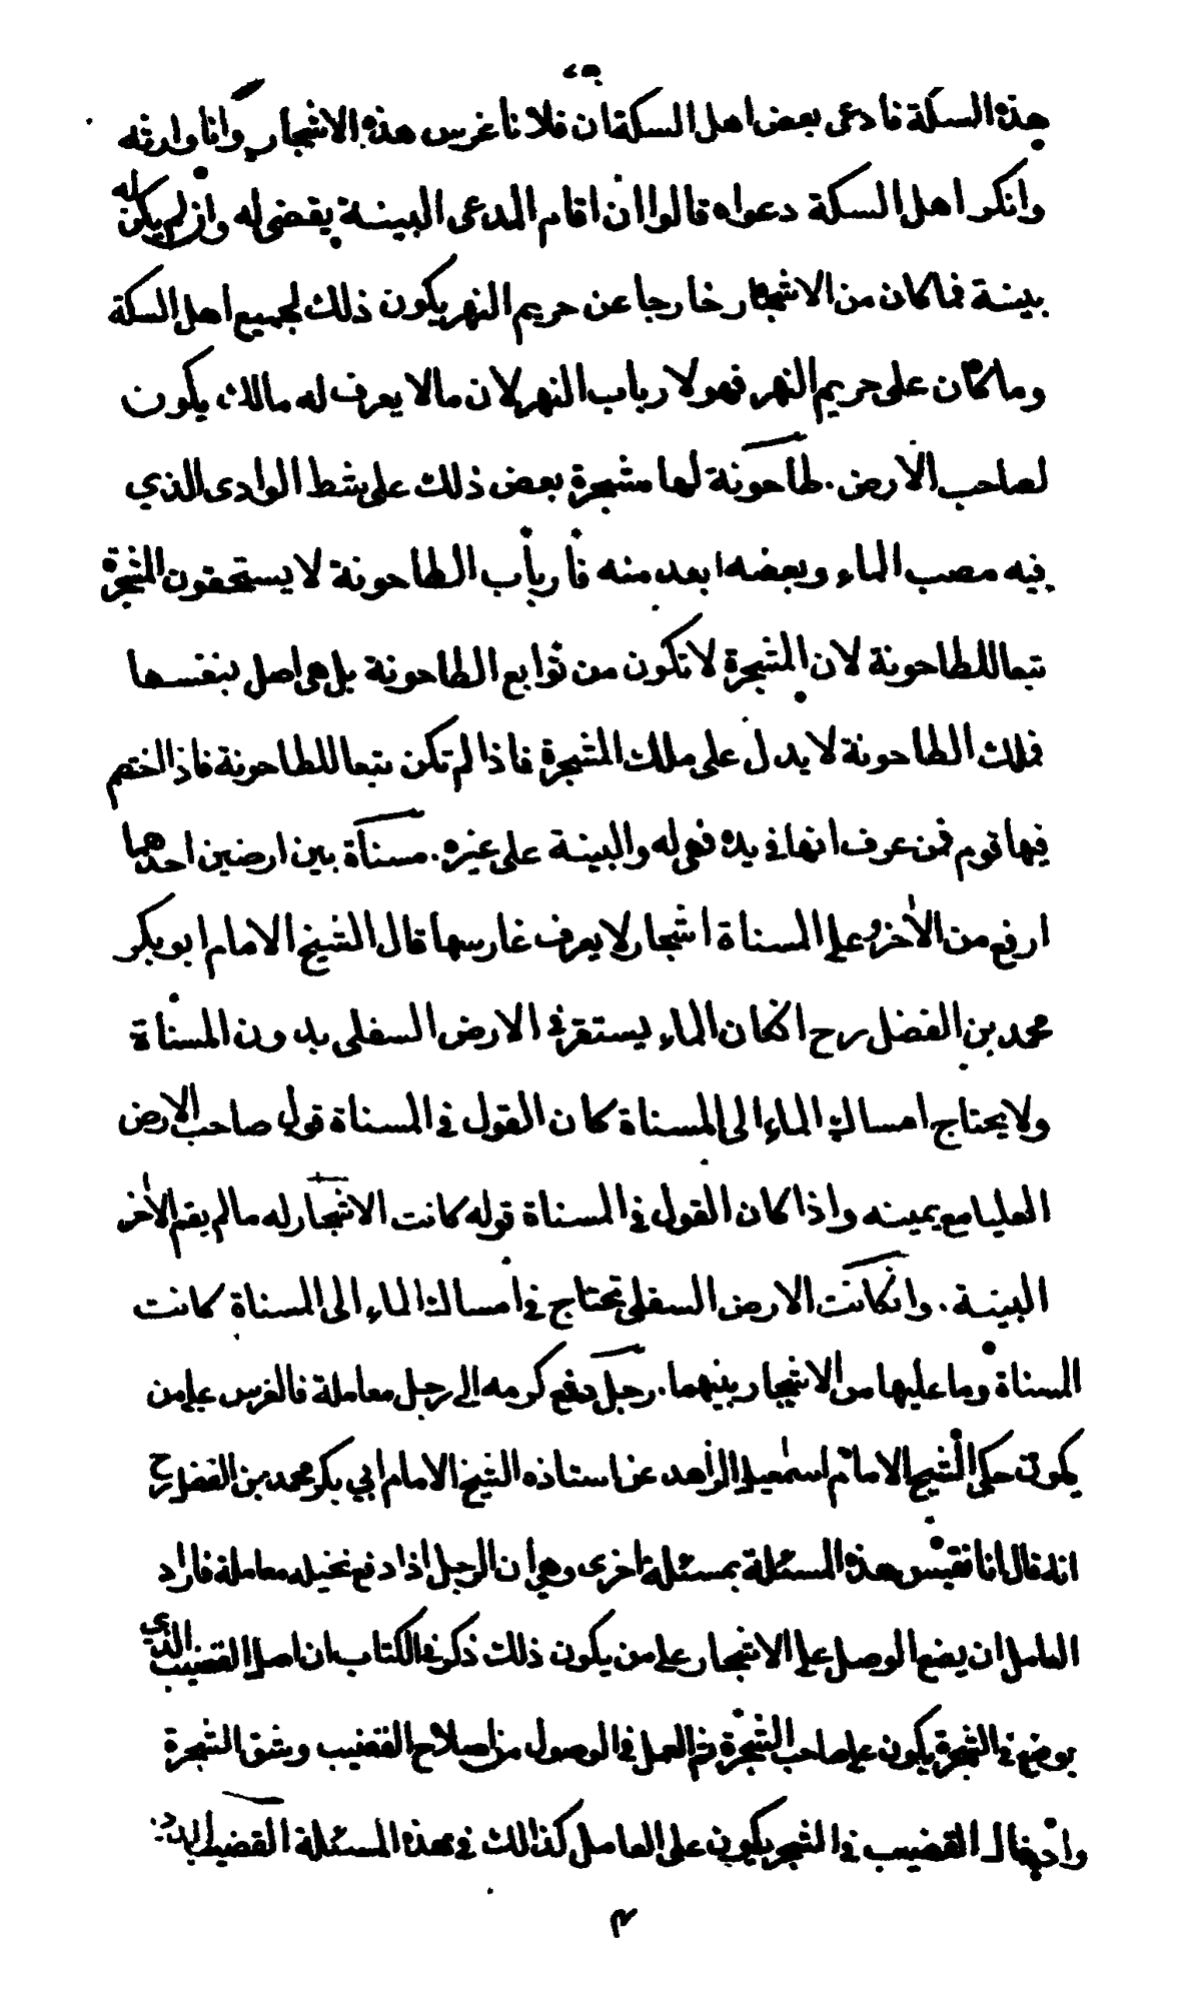 هذه السكة فادعى بعض اهل السكة ان فلانا غرس هذه الاشجار وانا وارثه
وانكر اهل السكة دعواه قالوا ان اقام المدعى البينة يقضى له وان لم يكن له
بينة فما كان من الاشجار خارجا عن حريم النهر يكون ذلك لجميع اهل السكة
وما كان على حريم النهر فهو لارباب النهر لان مالا يعرف له مالك يكون
لصاحب الارض . طاحونة لها مشجرة بعض ذلك على شط الوادى الذي
فيه مصب الماء وبعضها بعد منه فأرباب الطاحونة لا يستحقون المشجرة
تبعا للطاحونة لان المشجرة لا تكون من توابع الطاحونة بل هى اصل بنفسها
فملك الطاحونة لا يدل على ملك المشجرة فاذا لم تكن تبعا للطاحونة فاذا اختصم
فيها قوم فمن عرف انها فى يده فهى له والبينة على غيره . مسناة بين ارضين احدهما
ارفع من الأخر وعلى المسناة اشجار لا يعرف غارسها قال الشيخ الامام ابو بكر
محمد بن الفضل رح انكان الماء يستقر فى الارض السفلى بدون المسناة
ولا يحتاج امساك الماء الى المسناة كان القول فى المسناة قول صاحب الارض
العليا مع يمينه واذا كان القول فى المسناة قوله كانت الاشجار له مالم يقم الأخر
البينة . وانكانت الارض السفلى تحتاج فى امساك الماء الى المسناة كانت
المسناة وما عليها من الاشجار بينهما . رجل دفع كرمه الى رجل معاملة فالغرس على من
يكون حكى الشيخ الامام اسمعيل الزاهد عن استاذه الشيخ الامام ابي بكر محمد بن الفضل رح
انه قال انا نقيس هذه المسئلة بمسئلة اخرى وهى ان الرجل اذا دفع نخيله معاملة فاراد
العامل ان يضع الوصل على الاشجار على من يكون ذلك ذكر فى الكتاب ان اصل القضيب الذي
يوضع فى الشجرة يكون على صاحب الشجرة ثم العمل فى الوصول من اصلاح القضيب وشق الشجرة
وادخال القضيب فى الشجر يكون على العامل كذالك فى هذه المسئلة القضيب